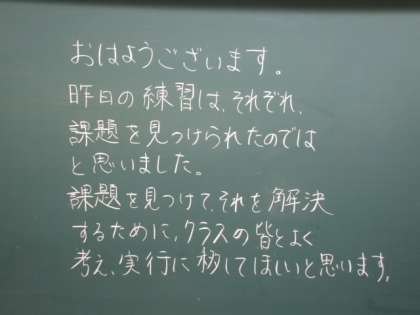 おはようございます。
昨日の練習は、それぞれ、
課題を見つけられたのでは
と思いました。
課題を見つけて、それを解決
するために、クラスの皆とよく
考え、実行に移してほしいと思います。